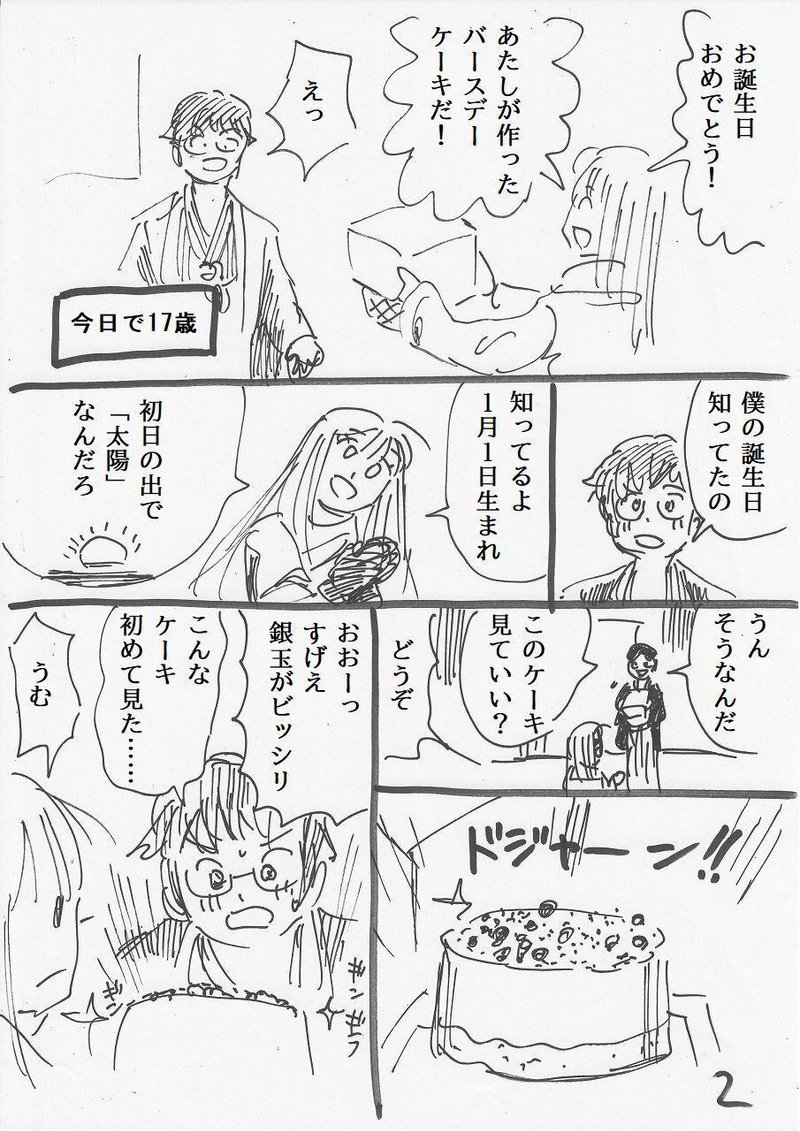 お誕生日
おめでとう！
あたしが作った
バースデー
ケーキだ！
えっ
今日で17歳
僕の誕生日
知ってたの
知ってるよ
1月1日生まれ
初日の出で
「太陽」
なんだろ
うん
そうなんだ
このケーキ
見ていい？
どうぞ
ドジャーン!!
おおーっ
すげえ
銀玉がビッシリ
こんな
ケーキ
初めて見た……
うむ
ギンギラ
ギン
2